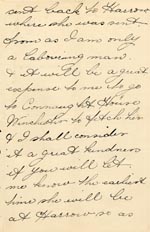 sent back to Harrow
where she was sent
from as I am only
a Labouring man.
& it will be a great
expense to me to go
to Connaught House
Winchester to fetch her
& I shall consider
it a great kindness
if you will let
me know the earliest
time she will be
at Harrow so as